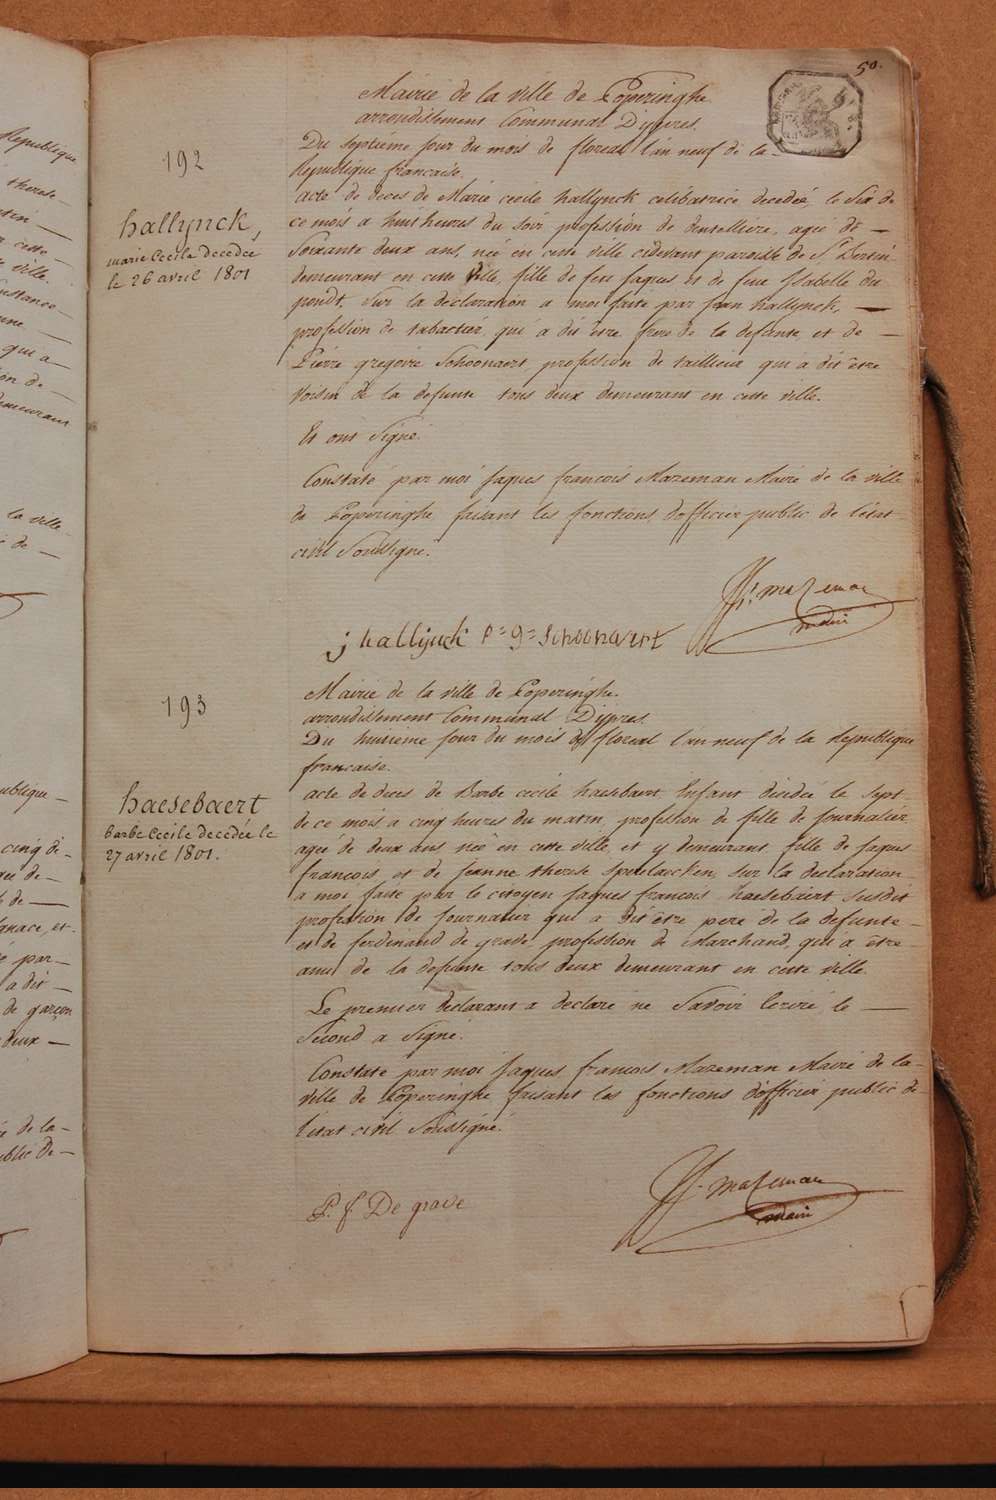 50.
Mairie de la ville de Poperinghe
arrondissement Communal Dijpres.
Du Septieme jour du mois de floreal l'an neuf de la
Republique francaise.
192
hallynck,
marie Cecile decedée
le 26 avril 1801
acte de deces de Marie cecile hallynck celibatrice decedeé, le Six de
ce mois a huit heures du Soir profession de dentelliere, ageé de —
Soixante deux ans, neé en cette ville cidevant paroisse de St Bertin
demeurant en cette Ville, fille de feu jaques et de feue Isabelle du
pondt, Sur la declaration a moi faite par jean hallynck, —
profession de tabactier, qui a dit être frere de la defunte, et de —
Pierre gregoire Schoonaert, profession de taillieur qui a dit être
Voisin de la defunte tous deux demeurant en cette ville.
Et ont Signé.
Constaté par moi jaques francois Mazeman Maire de la ville
de Poperinghe faisant les fonctions d'officier public de l'etat
civil Soussigné.
mazeman
maire
j hallijnck P= g= Schoonaert
193
haesebaert
barbe Cecile decedée le
27 avril 1801.
Mairie de la ville de Poperinghe.
arrondissement Communal Dijpres.
Du huitieme jour du mois de floreal l'an neuf de la Republique
francaise.
acte de deces de Barbe cecile haesebaert Enfant decedée le Sept
de ce mois, a cinq heures du matin, profession de fille de journalier
ageé de deux ans neé en cette ville, et y demeurant, fille de jaques
francois, et de jeanne therese Sur la declaration
a moi faite par le citoyen jaques francois haesebaert susdit
profession de journalier qui a dit être pere de la defunte —
et de ferdinand de grave, profession de Marchand, qui a être
ami de la defunte tous deux demeurant en cette ville.
Le premier declarant a declaré ne Savoir Ecrire, le —
Second a Signé.
Constaté par moi jaques francois Mazeman Maire de la
ville de Poperinghe faisant les fonctions d'officier public de
l'etat civil Soussigné.
mazeman
maire
P. f De grave